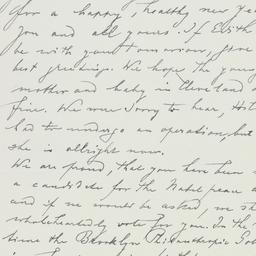 for a happy, healthy new Yea
you and all yours. If Edith
be with you
best greetings. We hope the young
mother and baby in Cleveland
fine. We were sorry to hear,
had to undergo an operation, but
she is allright now.
We are proud, that you have been
a candidate for the Nobel peace
and if we would be asked, we
wholeheartedly vote for you. In the
time the Brooklyn Philanthropic